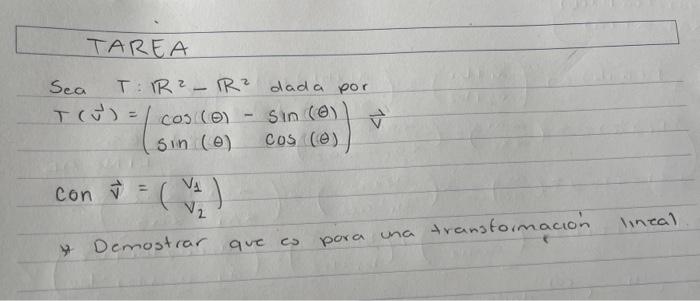 TAREA
Sea T: ℝ² – ℝ² dada por
T(v⃗) = ( cos(θ) - sin(θ) ) v⃗
( sin(θ) cos(θ) )
con v⃗ = ( v1 )
( v2 )
* Demostrar que es para una transformación lineal.